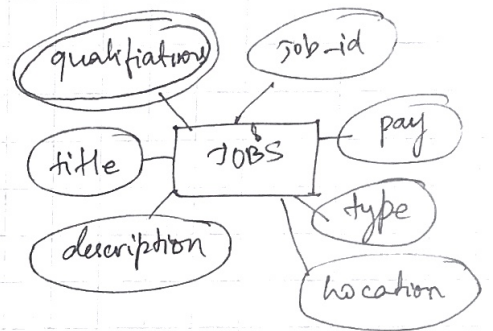 qualifiations
Job_id
JOBS
pay
title
type
description
Location